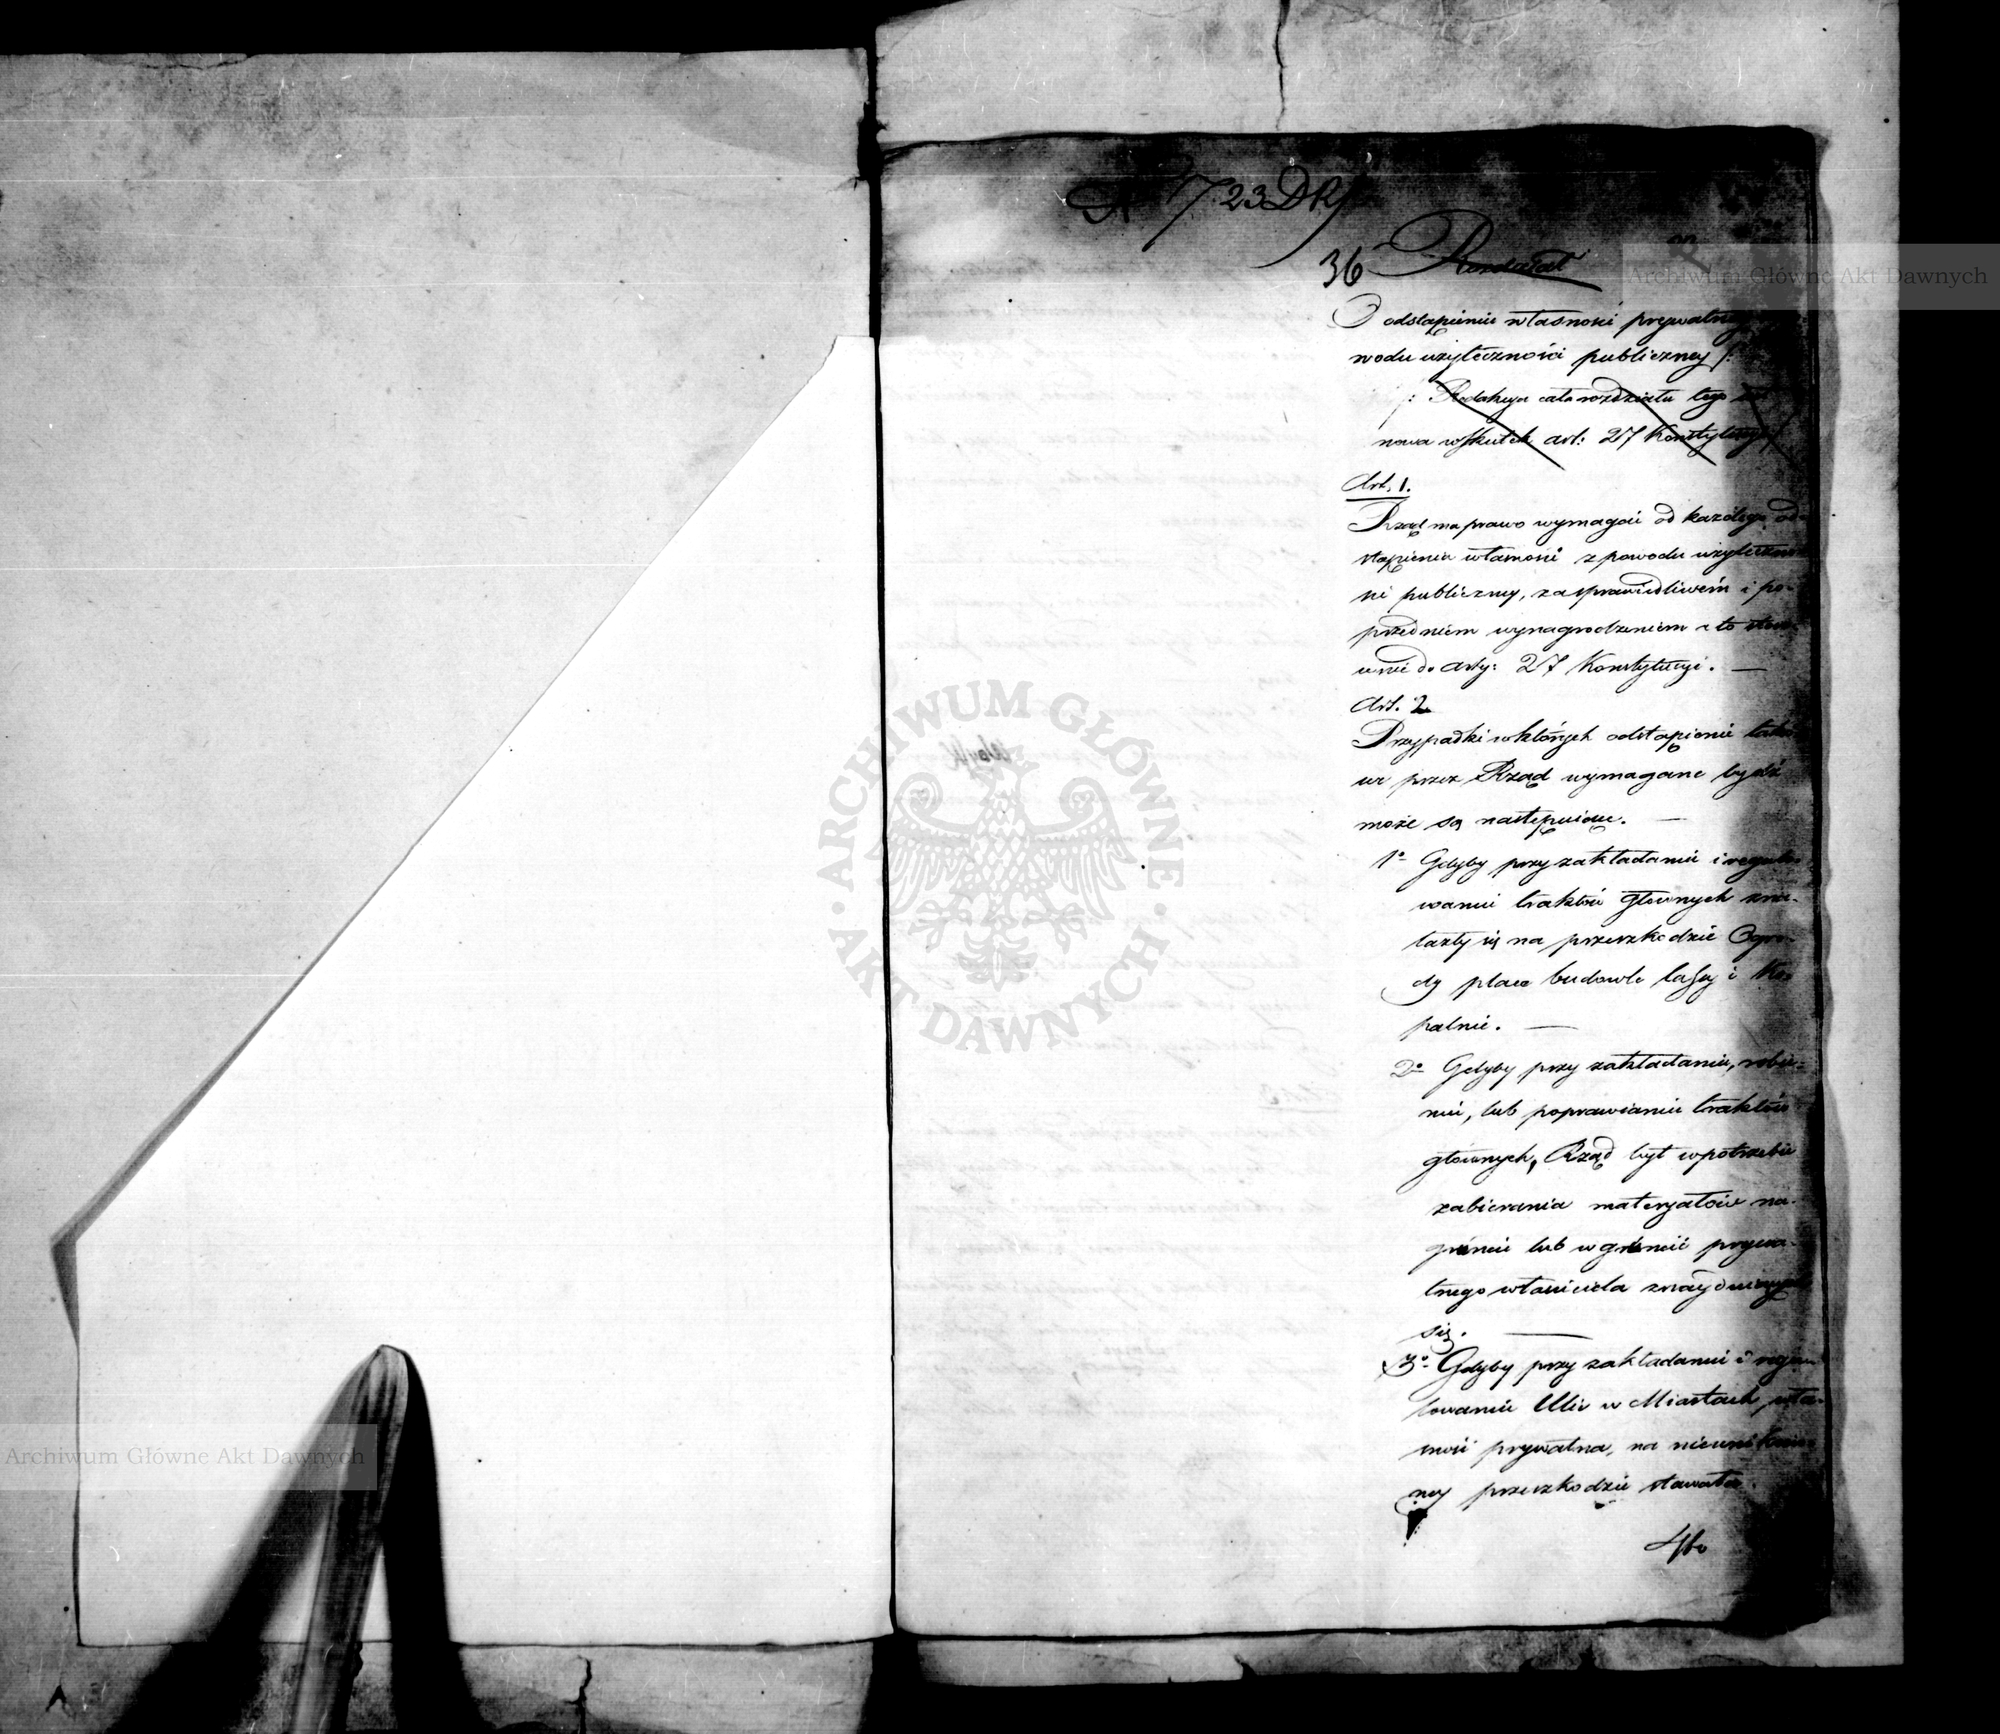 № 1723 DRz
36 Rozdział
O odstąpieniu własności prywatney
wodu użyteczności publiczney /:
/: Redakcya cała rozdziału tego
nowa wskutek art: 27 Konstytucyi
Art. 1.
Rząd ma prawo wymagać od każdego od-
stąpienia własności z powodu użyteczno
ści publiczney, za sprawiedliwém i po-
przedniem wynagrodzeniem a to stoso-
wnie do arty: 27 Konstytucyi. —
Art. 2
Przypadki w których odstąpienie tako
we przez Rząd wymagane bydź
może są następuiące. —
1° Gdyby przy zakładaniu i regulo-
waniu traktów głownych zna-
lazły się na przeszkodzie Ogro-
dy place budowle lasy i Ko
palnie. —
2° Gdyby przy zakładaniu, robie-
niu, lub poprawianiu traktów
głównych, Rząd był w potrzebie
zabierania materyałów na
gruncie lub w gruncie prywa-
tnego właściciela znayduiących
się. —
3° Gdyby przy zakładaniu i regu-
lowaniu Ulic w Miastach, wła-
sność prywatna, na nieuniknio-
ney przeszkodzie stawała.
4to
Archiwum Główne Akt Dawnych
ARCHIWUM GŁÓWNE · AKT DAWNYCH ·
Archiwum Główne Akt Dawnych